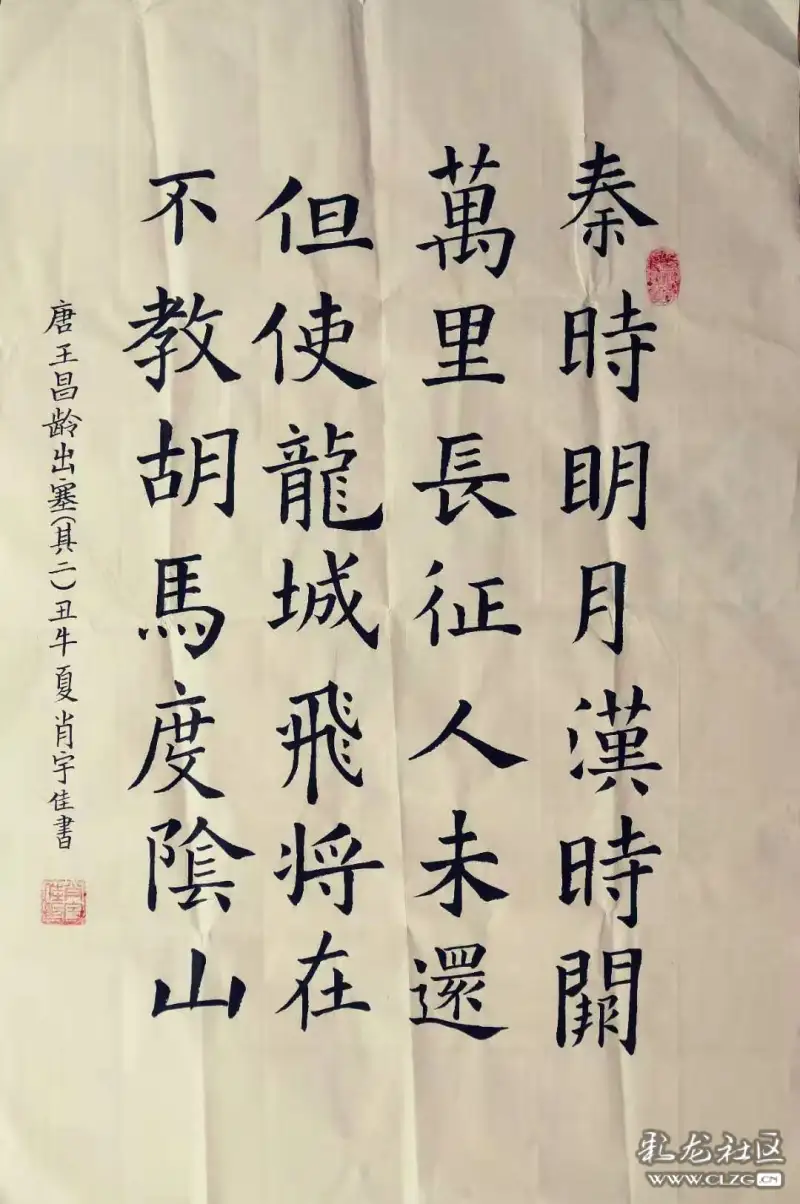 秦時明月漢時關
萬里長征人未還
但使龍城飛将在
不教胡馬度陰山
唐王昌龄出塞(其二)丑牛夏肖宇佳書
彩龙社区
WWW.CLZG.CN